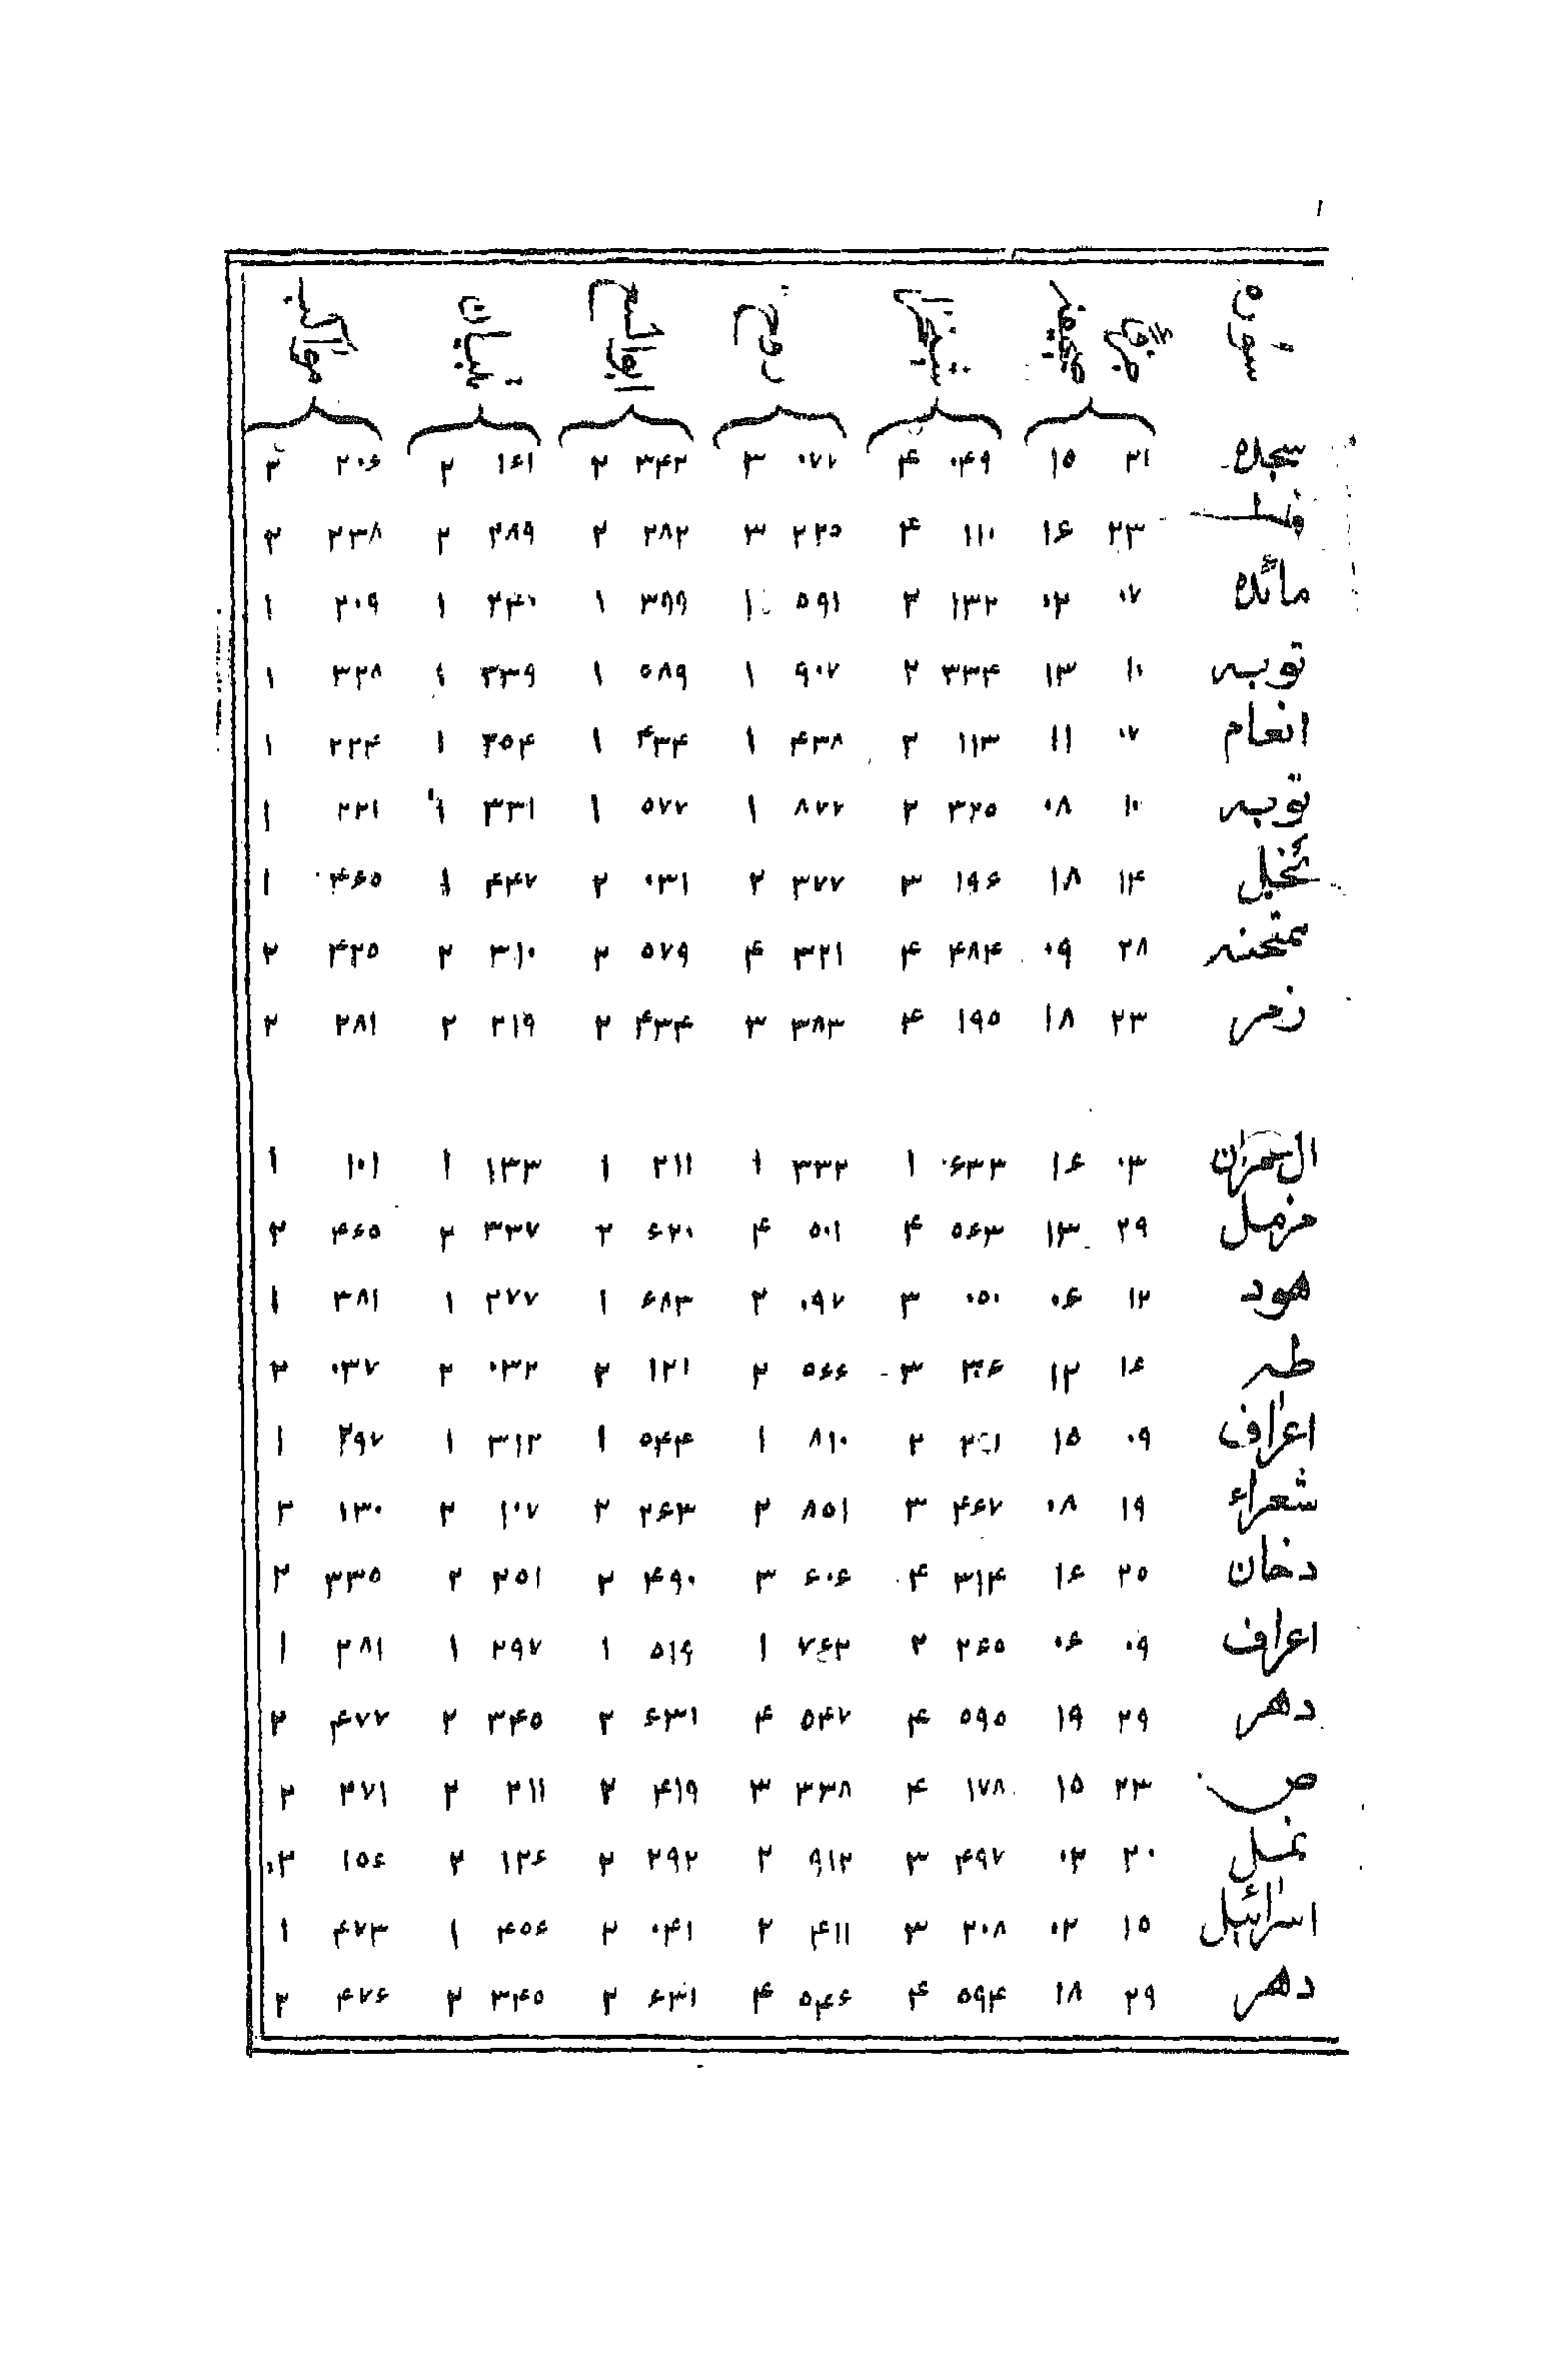 سوره
سجده ۲۱ ۱۵ ۰۴۹ ۴ ۰۷۲ ۳ ۳۴۲ ۲ ۱۶۱ ۲ ۲۰۶ ۲
۲۳ ۱۶ ۱۱۰ ۴ ۲۲۵ ۳ ۲۸۲ ۲ ۲۸۹ ۲ ۲۳۸ ۲
مائده ۰۷ ۰۲ ۱۳۲ ۲ ۵۹۱ ۱ ۳۹۹ ۱ ۲۴۰ ۱ ۲۰۹ ۱
توبه ۱۰ ۱۳ ۳۳۴ ۲ ۹۰۷ ۱ ۵۸۹ ۱ ۳۳۹ ۱ ۳۲۸ ۱
انعام ۰۷ ۱۱ ۱۱۳ ۲ ۴۳۸ ۱ ۴۳۴ ۱ ۲۵۴ ۱ ۲۲۴ ۱
توبه ۱۰ ۰۸ ۳۲۵ ۲ ۸۷۲ ۱ ۵۷۲ ۱ ۳۳۱ ۱ ۲۲۱ ۱
نحل ۱۴ ۱۸ ۱۹۶ ۳ ۳۷۷ ۲ ۰۳۱ ۲ ۴۴۷ ۱ ۴۶۵ ۱
ممتحنه ۲۸ ۰۹ ۴۸۴ ۴ ۳۲۱ ۴ ۵۷۹ ۲ ۳۱۰ ۲ ۴۲۵ ۲
زمر ۲۳ ۱۸ ۱۹۵ ۴ ۳۸۳ ۳ ۴۳۴ ۲ ۲۱۹ ۲ ۲۸۱ ۲
ال عمران ۰۳ ۱۶ ۶۳۳ ۱ ۳۳۲ ۱ ۲۱۱ ۱ ۱۳۳ ۱ ۱۰۱ ۱
مزمل ۲۹ ۱۳ ۵۶۳ ۴ ۵۰۱ ۴ ۶۲۰ ۲ ۳۳۷ ۲ ۴۶۵ ۲
هود ۱۲ ۰۶ ۰۵۰ ۳ ۰۹۷ ۲ ۶۸۳ ۱ ۲۷۷ ۱ ۳۸۱ ۱
طه ۱۶ ۱۲ ۳ ۵۶۶ ۲ ۱۲۱ ۲ ۰۳۲ ۲ ۰۳۷ ۲
اعراف ۰۹ ۱۵ ۲ ۸۱۰ ۱ ۵۴۴ ۱ ۳۱۲ ۱ ۲۹۷ ۱
شعراء ۱۹ ۰۸ ۴۶۷ ۳ ۸۵۱ ۲ ۲۶۳ ۲ ۱۰۷ ۲ ۱۳۰ ۲
دخان ۲۵ ۱۶ ۳۱۴ ۴ ۶۰۶ ۳ ۴۹۰ ۲ ۲۵۱ ۲ ۳۳۵ ۲
اعراف ۰۹ ۰۶ ۲۶۵ ۲ ۷۶۲ ۱ ۵۱۶ ۱ ۲۹۷ ۱ ۲۸۱ ۱
دهر ۲۹ ۱۹ ۵۹۵ ۴ ۵۴۷ ۴ ۶۳۱ ۲ ۳۴۵ ۲ ۴۷۷ ۲
ص ۲۳ ۱۵ ۱۷۸ ۴ ۳۳۸ ۳ ۴۱۹ ۲ ۲۱۱ ۲ ۲۷۱ ۲
نمل ۲۰ ۰۲ ۴۹۷ ۳ ۹۱۲ ۲ ۲۹۲ ۲ ۱۲۶ ۲ ۱۵۶ ۲
اسرائیل ۱۵ ۰۲ ۲۰۸ ۳ ۴۱۱ ۲ ۰۴۱ ۲ ۴۵۶ ۱ ۴۷۳ ۱
دهر ۲۹ ۱۸ ۵۹۴ ۴ ۵۴۶ ۴ ۶۳۱ ۲ ۳۴۵ ۲ ۴۷۶ ۲